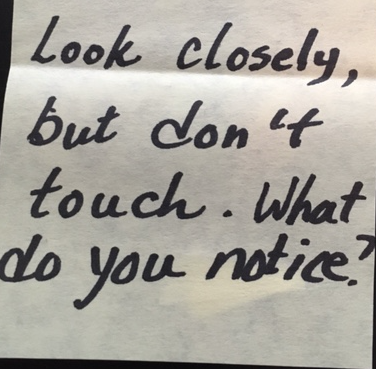 Look closely,
but don't
touch. What
do you notice?